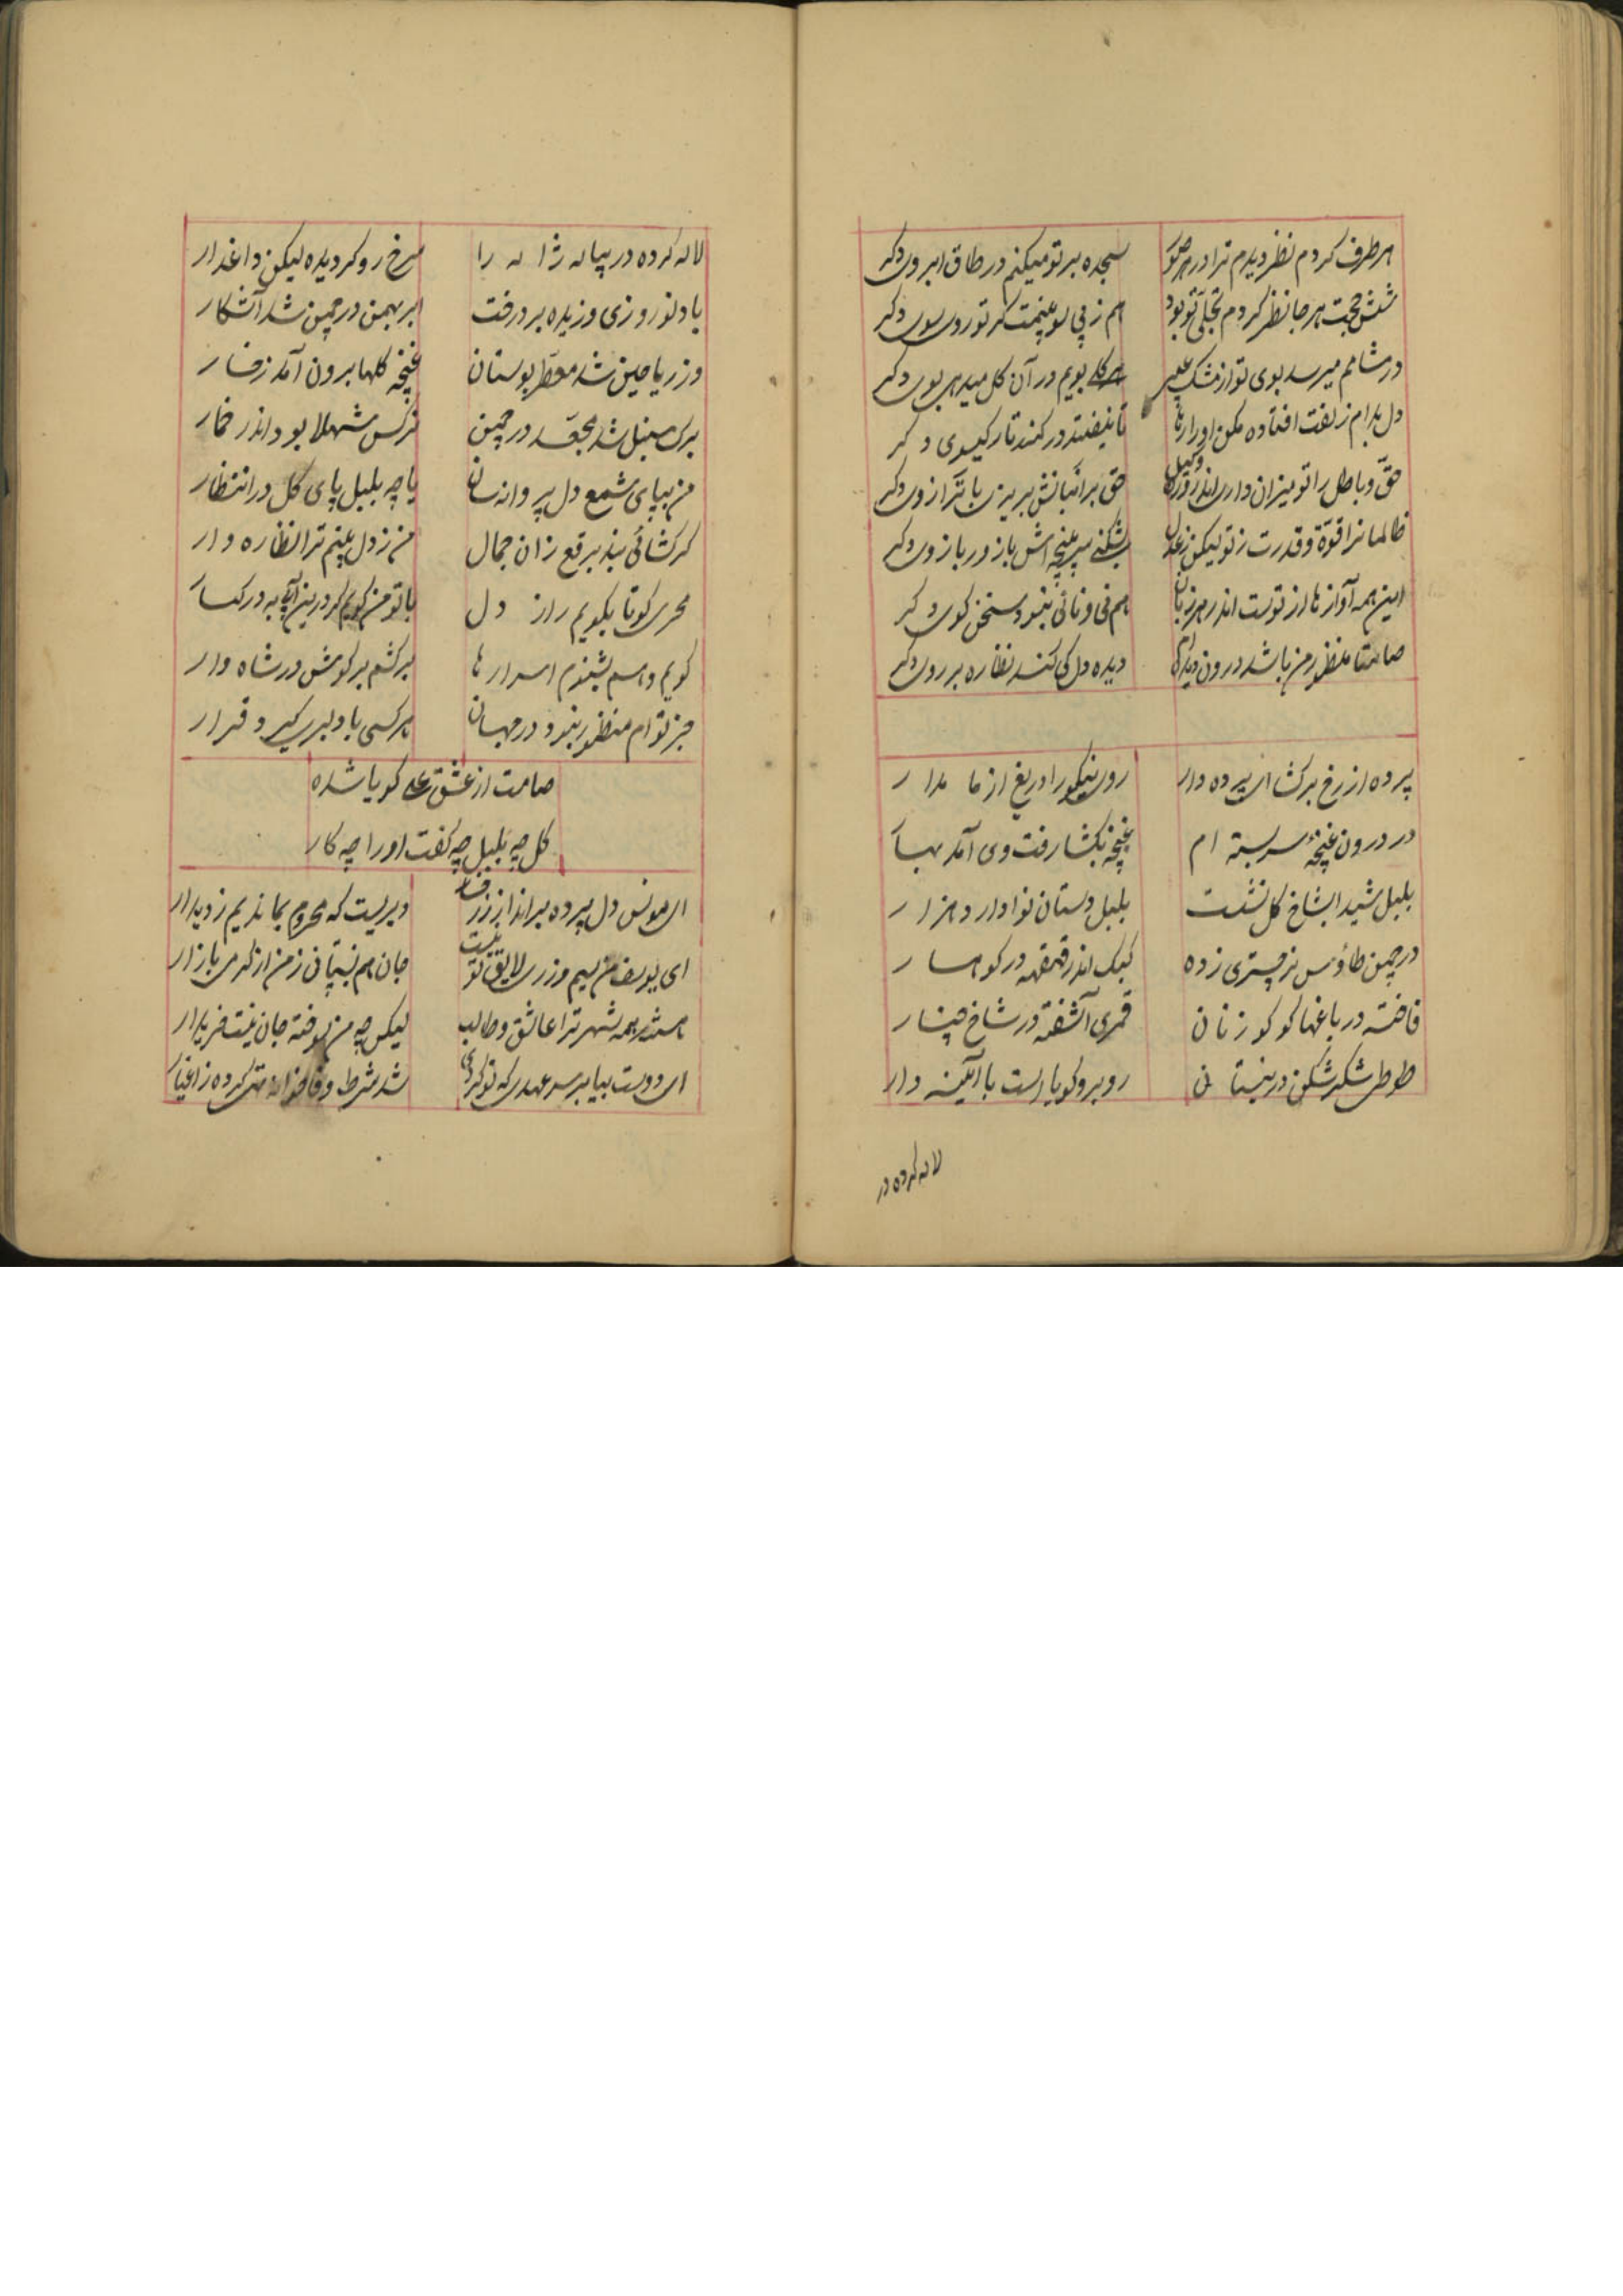 هر طرف کردم نظر دیدم ترا در هر صور
سجده بر تو میکنم در طاق ابروی دکر
شش جهت هر جا نظر کردم تجلی تو بود
هم ز پی سو بینمت کر تو روی سوی دکر
در مشامم میرسد بوی تو از مشک عبیر
هر کلی بویم در آن کل میدهی بوی دکر
دل بدام زلفت افتاده مکن او را رها
تا نیفتد در کمند تار کیسوی دکر
حق و باطل را تو میزان داری اندر
حق برانباتش بریزی با ترازوی دکر
ظالمانرا قوة و قدرت ز تو لیکن ز عدل
بشکنی سر پنجه اش با زور بازوی دکر
این همه آوازها از توست اندر هر زبان
هم نی و نائی بنبود سخن کوی دکر
صامتا منظر من باشد درون دیده ام
دیده دل کی کند نظاره بر روی دکر
پرده از رخ برکشا ای پرده دار
روی نیکو را دریغ از ما مدار
در درون غنچهٔ سربسته ام
غنچه بکشا رفت دی آمد بهار
بلبل شیدا بشاخ کل نشست
بلبل دستان نوا دارد هزار
در چمن طاؤس نر چتری زده
کبک اندر قهقهه در کوهسار
فاخته در باغها کوکو زنان
قمری آشفته در شاخ چنار
طوطی شکر شکن در نیستان
روبرو کویا است با آئینه دار
لاله کرده در
لاله کرده در پیاله ژاله را
سرخ رو کردیده لیکن داغدار
باد نوروزی وزیده بر درخت
ابر بهمن در چمن شد آشکار
وز ریاحین شد معطر بوستان
غنچه کلها برون آمد ز خار
برک سنبل شد مجعد در چمن
نرکس شهلا بود اندر خمار
من بپای شمع دل پروانه سان
یا چه بلبل پای کل در انتظار
کر کشائی بند برقع زان جمال
من ز دل بینم ترا نظاره وار
محرمی کو تا بکویم راز دل
با تو من کویم کر در بر آیی به در کنار
کویم و هم بشنوم اسرارها
برکشم بر کوش در شاه وار
جز تو ام منظور نبود در جهان
هر کسی با دلبری کیرد قرار
صامت از عشق علی کویا شده
کل چه بلبل چه کفت او را چه کار
ای مونس دل پرده برانداز ز رخسار
دیریست که محروم بماندیم ز دیدار
ای یوسف من سیم و زری لایق تو نیست
جان هم نستانی ز من از کرمی بازار
باشند همه شهر ترا عاشق و طالب
لیکن چه من سوخته جان نیست خریدار
ای دوست بیا بر سر عهدی که تو کردی
شد شرط وفا کرده ز اغیار